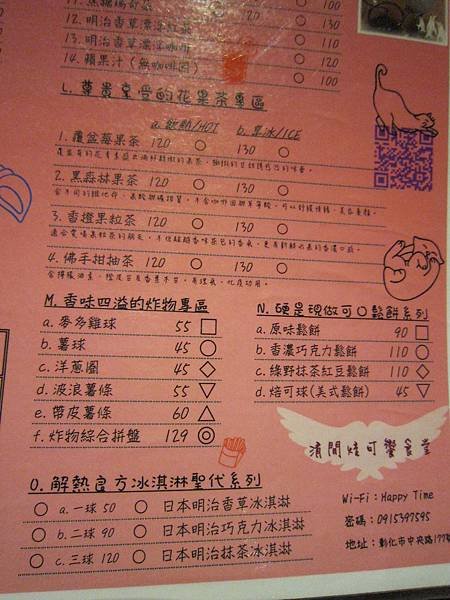 100
12. 明治香草漂浮紅茶 120 130
13. 明治香草漂浮咖啡 110
120
14. 蘋果汁(無咖啡因) 100
L. 尊貴享受的花果茶專區
a. 飲熱/HOT b. 果冰/ICE
1. 覆盆莓果茶 120 ○ 130 ○
2. 黑森林果茶 120 ○ 130 ○
3. 香橙果粒茶 120 ○ 130 ○
4. 佛手柑柚茶 120 ○ 130 ○
M. 香味四溢的炸物專區
a. 麥多雞球 55 □
b. 薯球 45 ○
c. 洋蔥圈 45 ◇
d. 波浪薯條 55 ▽
e. 帶皮薯條 60 △
f. 炸物綜合拼盤 129 ◎
N. 硬是現做可○鬆餅系列
a. 原味鬆餅 90 □
b. 香濃巧克力鬆餅 110 ○
c. 綠野抹茶紅豆鬆餅 110 ◇
d. 焙可球(美式鬆餅) 45 ▽
清閒焙可饗食堂
O. 解熱良方冰淇淋聖代系列
○ a. 一球 50 ○ 日本明治香草冰淇淋
○ b. 二球 90 ○ 日本明治巧克力冰淇淋
○ c. 三球 120 ○ 日本明治抹茶冰淇淋
Wi-Fi：Happy Time
密碼：0915397595
地址：彰化市中央路177號